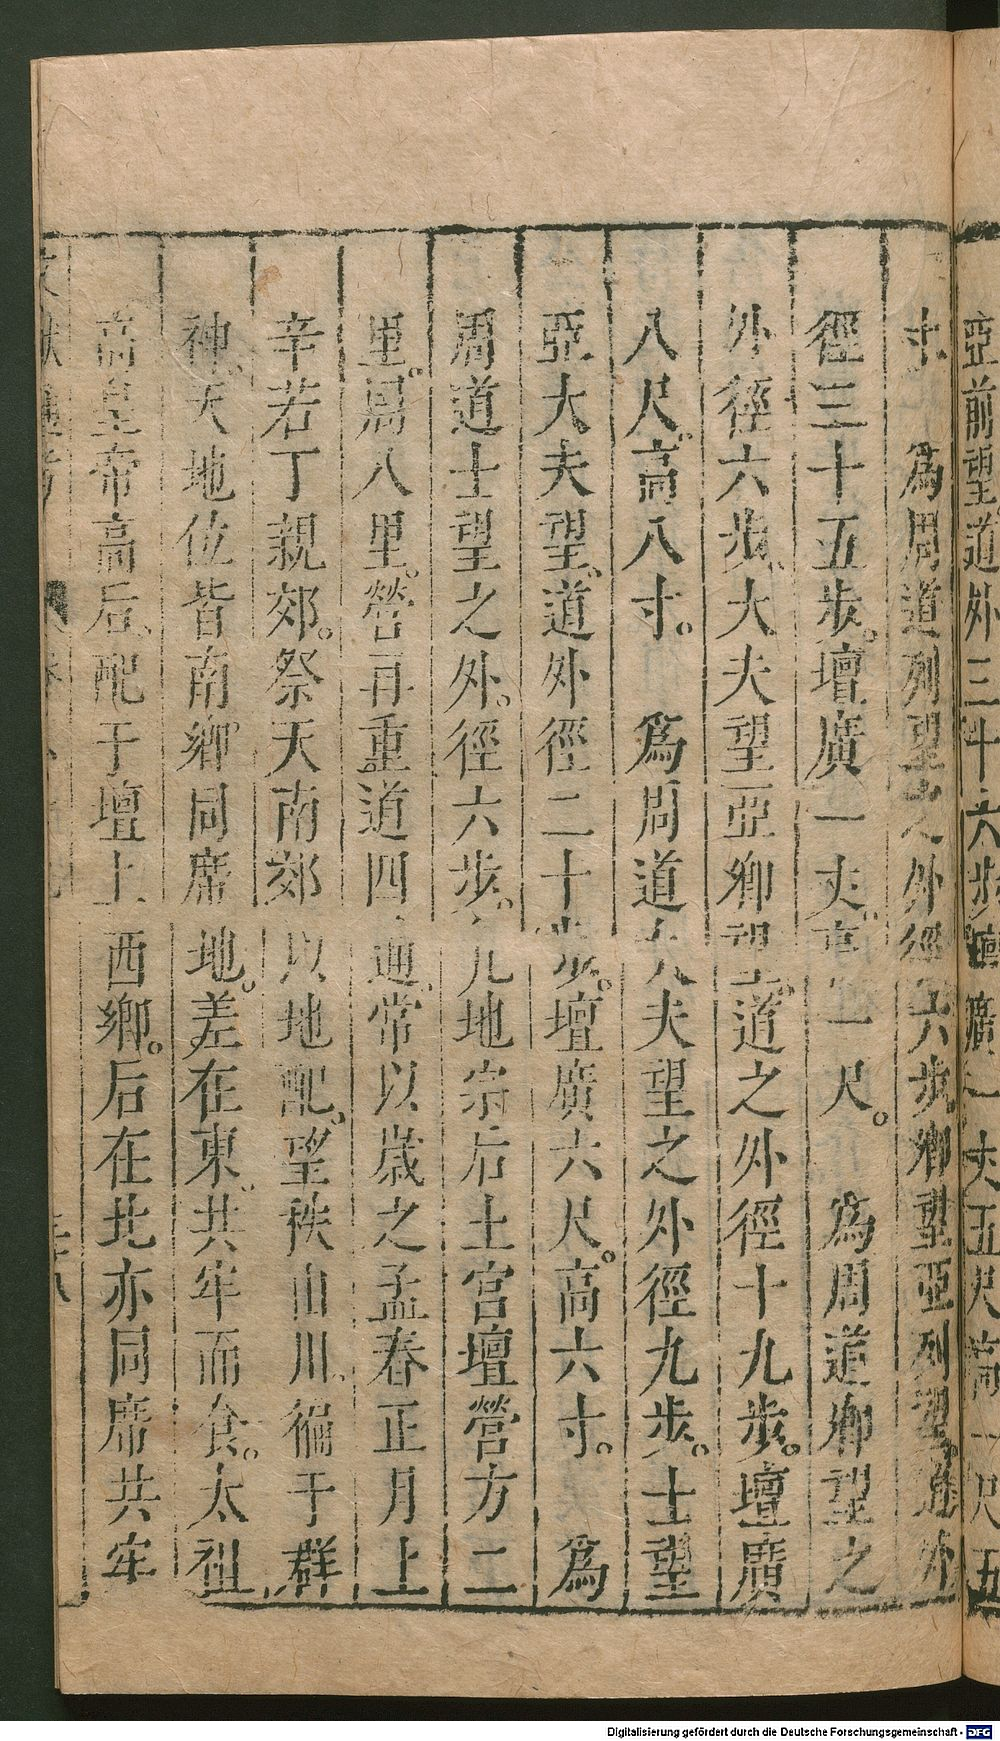 亞前望道外三十六步壇廣一丈五尺高一尺五
寸　爲周道列望之外徑六步卿望亞列望道外
徑三十五步壇廣一丈高一尺　爲周道卿望之
外徑六步大夫望亞卿望道之外徑十九步壇廣
八尺高八寸　爲周道大夫望之外徑九步士望
亞大夫望道外徑二十步壇廣六尺高六寸　爲
周道士望之外徑六步凡地宗后土宮壇營方二
里周八里營再重道四通常以歲之孟春正月上
辛若丁親郊祭天南郊以地配望秩山川徧于群
神天地位皆南鄉同席地差在東共牢而食太祖
高皇帝高后配于壇上西鄉后在北亦同席共牢
文獻通考
Digitalisierung gefördert durch die Deutsche Forschungsgemeinschaft - DFG